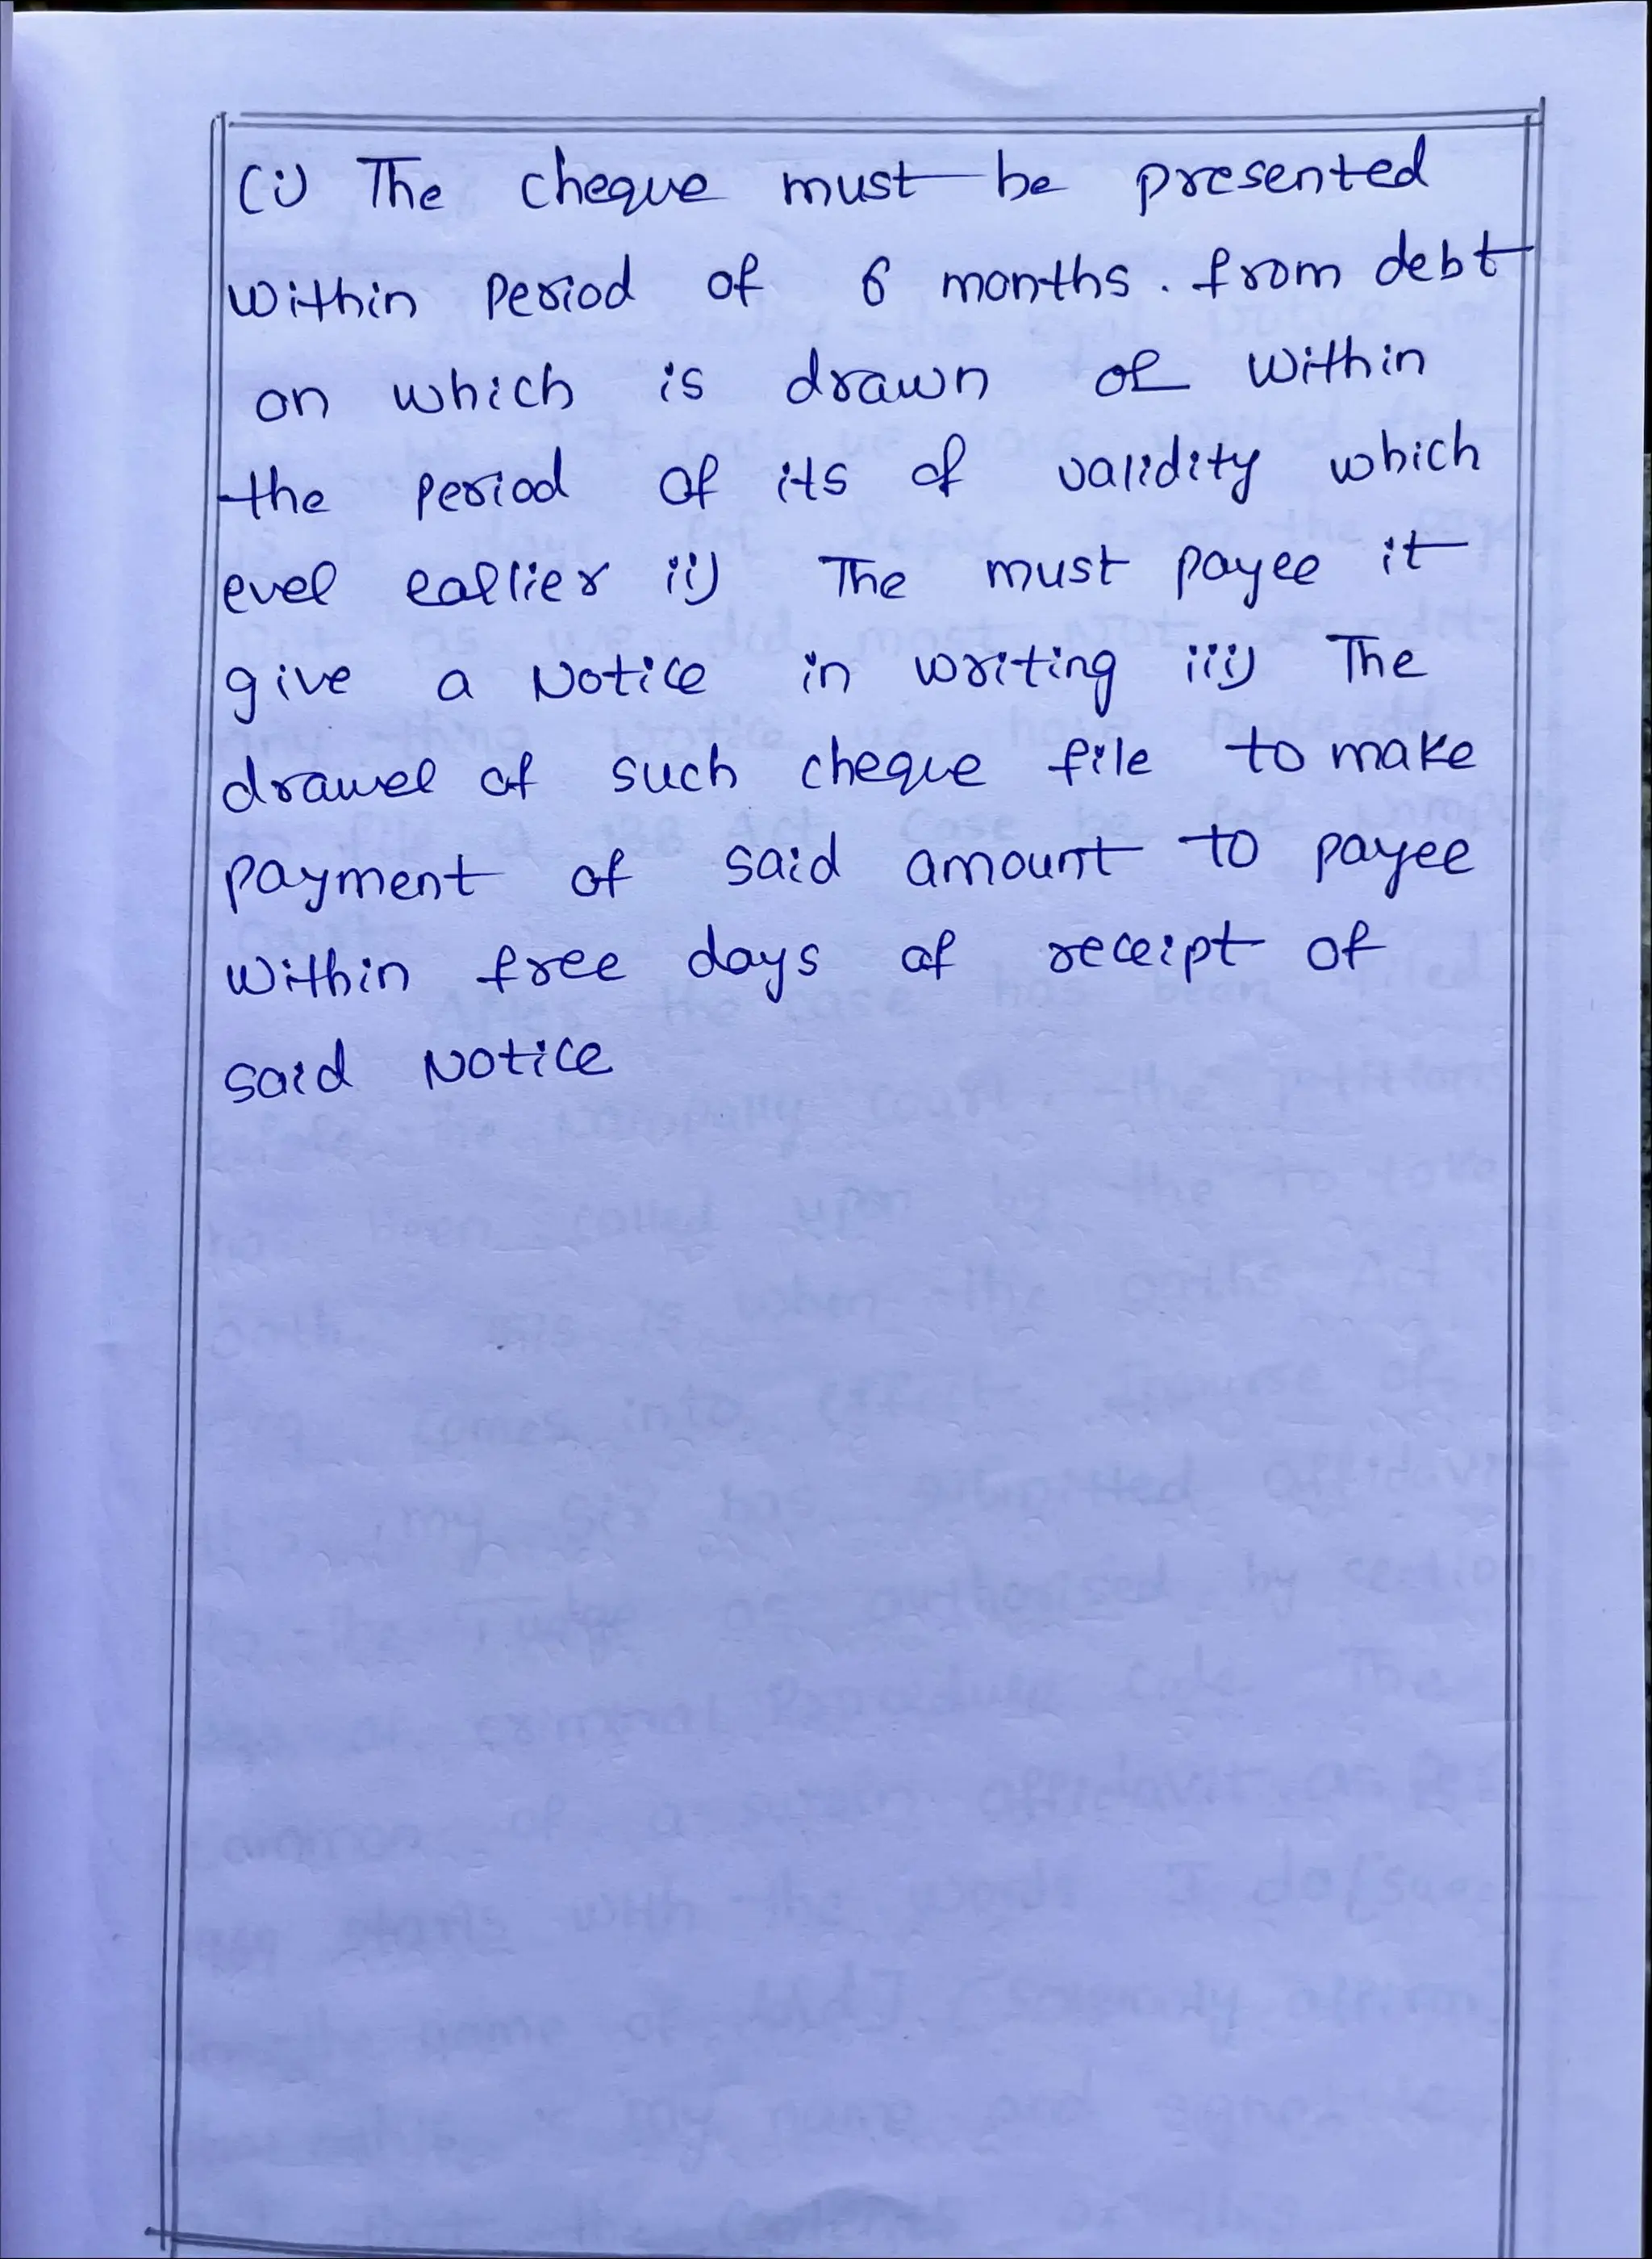 (i) The cheque must be presented
within period of 6 months. from debt
on which is drawn or within
the period of its of validity which
ever earlier ii) The must payee it
give a Notice in writing iii) The
drawer of such cheque file to make
payment of said amount to payee
within free days of receipt of
said Notice